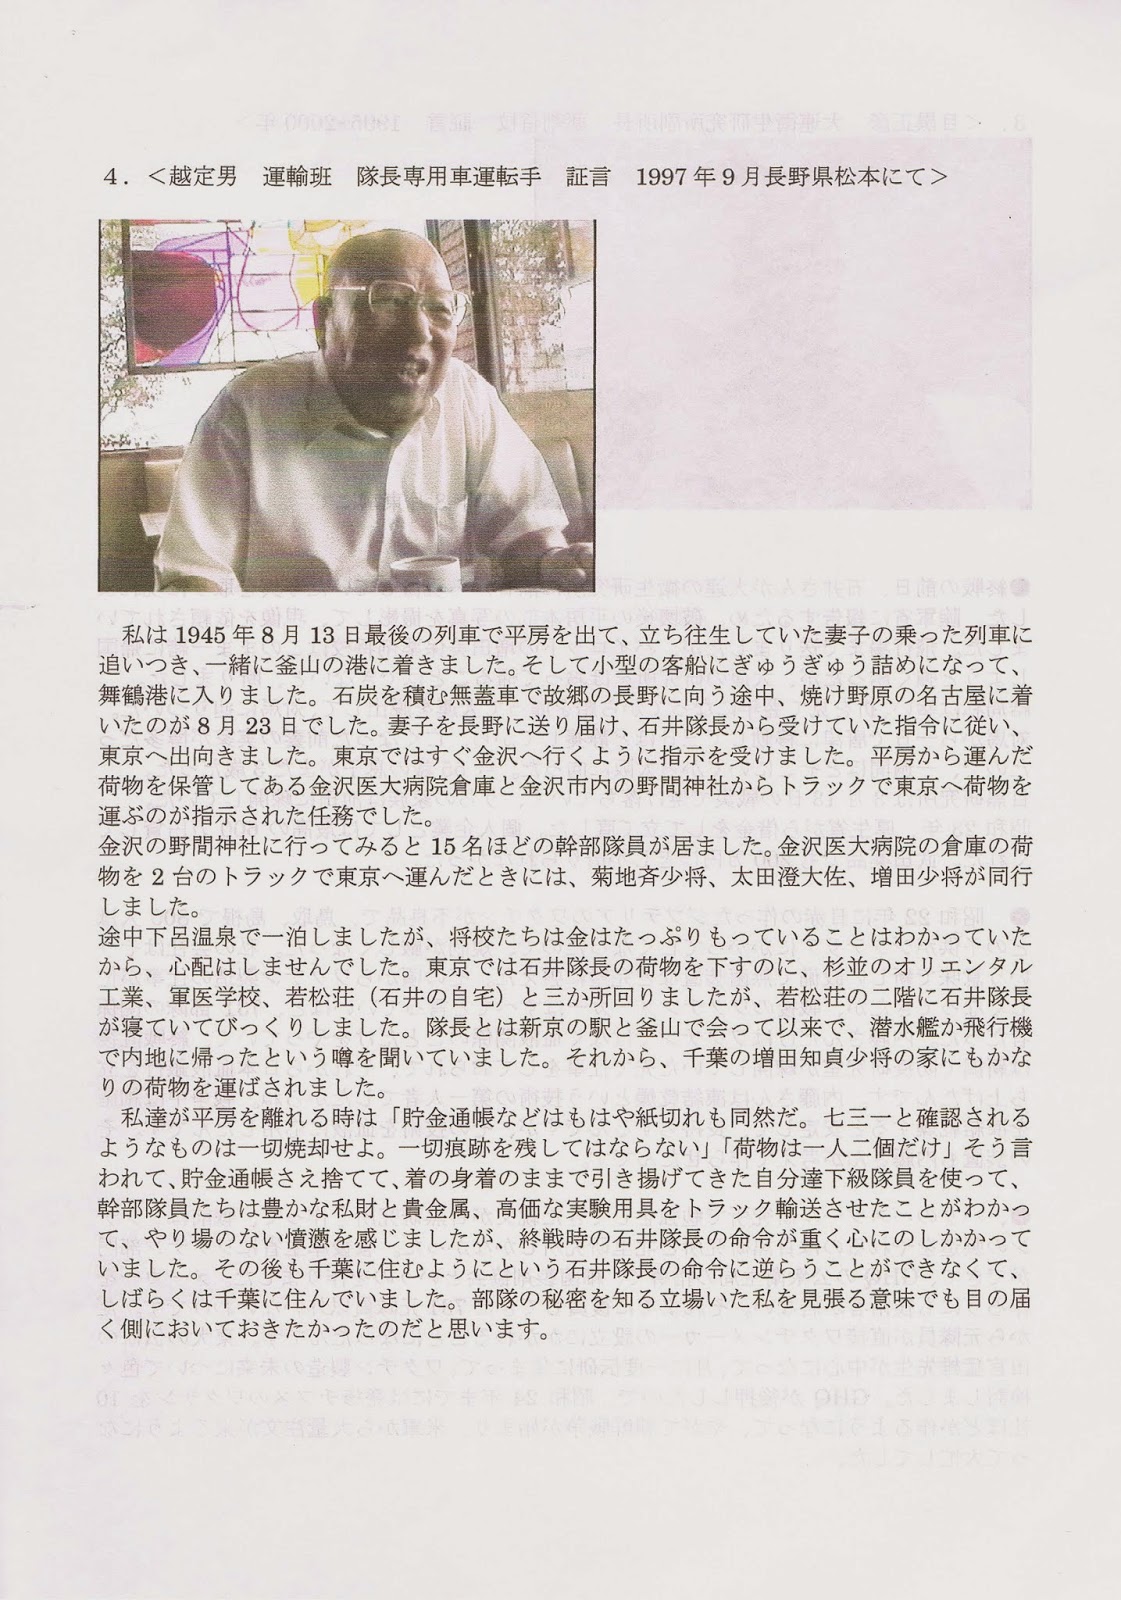 ４．＜越定男　運輸班　隊長専用車運転手　証言　1997年9月長野県松本にて＞
私は1945年8月13日最後の列車で平房を出て、立ち往生していた妻子の乗った列車に
追いつき、一緒に釜山の港に着きました。そして小型の客船にぎゅうぎゅう詰めになって、
舞鶴港に入りました。石炭を積む無蓋車で故郷の長野に向う途中、焼け野原の名古屋に着
いたのが8月23日でした。妻子を長野に送り届け、石井隊長から受けていた指令に従い、
東京へ出向きました。東京ではすぐ金沢へ行くように指示を受けました。平房から運んだ
荷物を保管してある金沢医大病院倉庫と金沢市内の野間神社からトラックで東京へ荷物を
運ぶのが指示された任務でした。
金沢の野間神社に行ってみると15名ほどの幹部隊員が居ました。金沢医大病院の倉庫の荷
物を2台のトラックで東京へ運んだときには、菊地斉少将、太田澄大佐、増田少将が同行
しました。
途中下呂温泉で一泊しましたが、将校たちは金はたっぷりもっていることはわかっていた
から、心配はしませんでした。東京では石井隊長の荷物を下すのに、杉並のオリエンタル
工業、軍医学校、若松荘（石井の自宅）と三か所回りましたが、若松荘の二階に石井隊長
が寝ていてびっくりしました。隊長とは新京の駅と釜山で会って以来で、潜水艦か飛行機
で内地に帰ったという噂を聞いていました。それから、千葉の増田知貞少将の家にもかな
りの荷物を運ばされました。
私達が平房を離れる時は「貯金通帳などはもはや紙切れも同然だ。七三一と確認される
ようなものは一切焼却せよ。一切痕跡を残してはならない」「荷物は一人二個だけ」そう言
われて、貯金通帳さえ捨てて、着の身着のままで引き揚げてきた自分達下級隊員を使って、
幹部隊員たちは豊かな私財と貴金属、高価な実験用具をトラック輸送させたことがわかっ
て、やり場のない憤懣を感じましたが、終戦時の石井隊長の命令が重く心にのしかかって
いました。その後も千葉に住むようにという石井隊長の命令に逆らうことができなくて、
しばらくは千葉に住んでいました。部隊の秘密を知る立場いた私を見張る意味でも目の届
く側においておきたかったのだと思います。